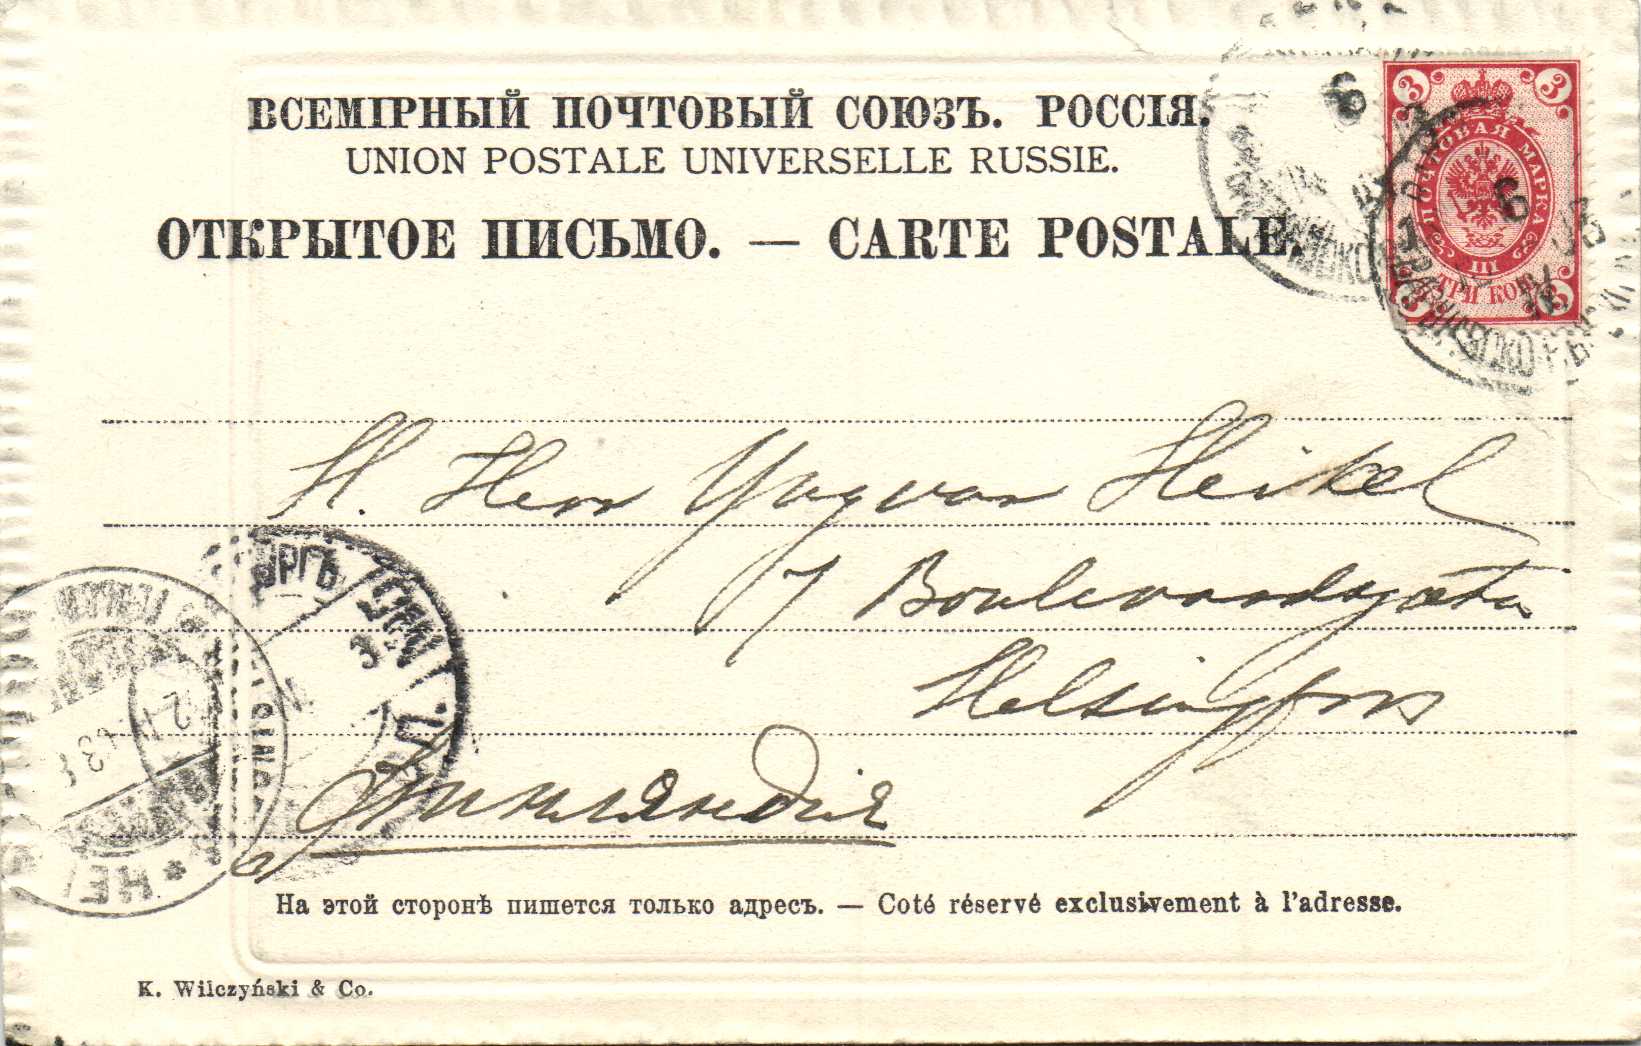 ВСЕМІРНЫЙ ПОЧТОВЫЙ СОЮЗЪ. РОССІЯ.
UNION POSTALE UNIVERSELLE RUSSIE.
ОТКРЫТОЕ ПИСЬМО. — CARTE POSTALE.
3 3
ПОЧТОВАЯ МАРКА
III
ТРИ КОП.
3 3
H. Herr Yngvar Heikel
7 Boulevardsgatan
Helsingfors
Финляндія
На этой сторонѣ пишется только адресъ. — Coté réservé exclusivement à l'adresse.
K. Wilczyński & Co.